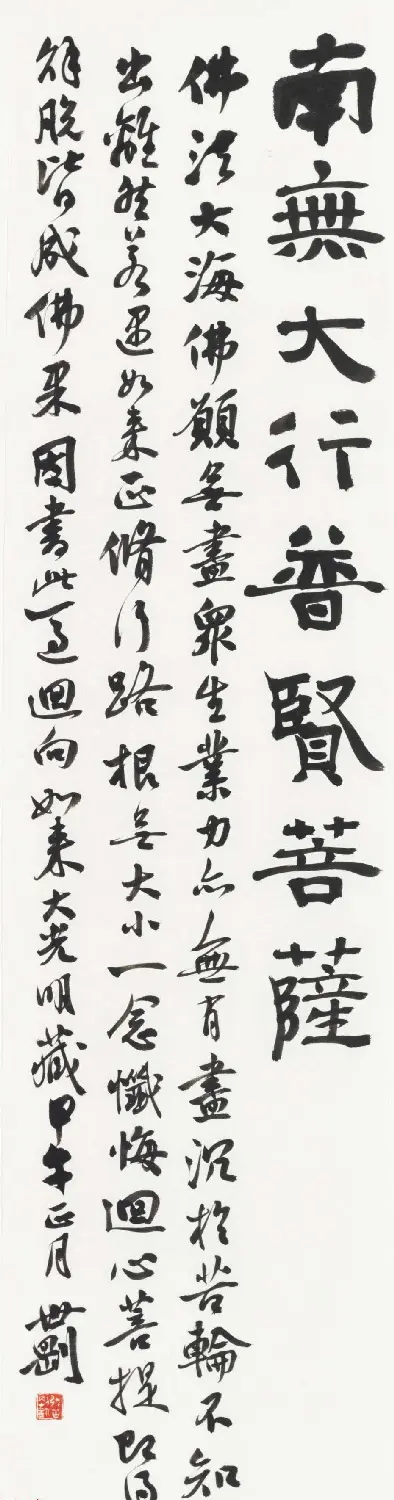 南無大行普賢菩薩
佛法大海佛願無盡衆生業力亦無有盡沉於苦輪不知
出離然若遇如来正脩行路根無大小一念懺悔迴心菩提即得
解脱皆成佛果因書此過迴向如来大光明藏甲午正月世剛